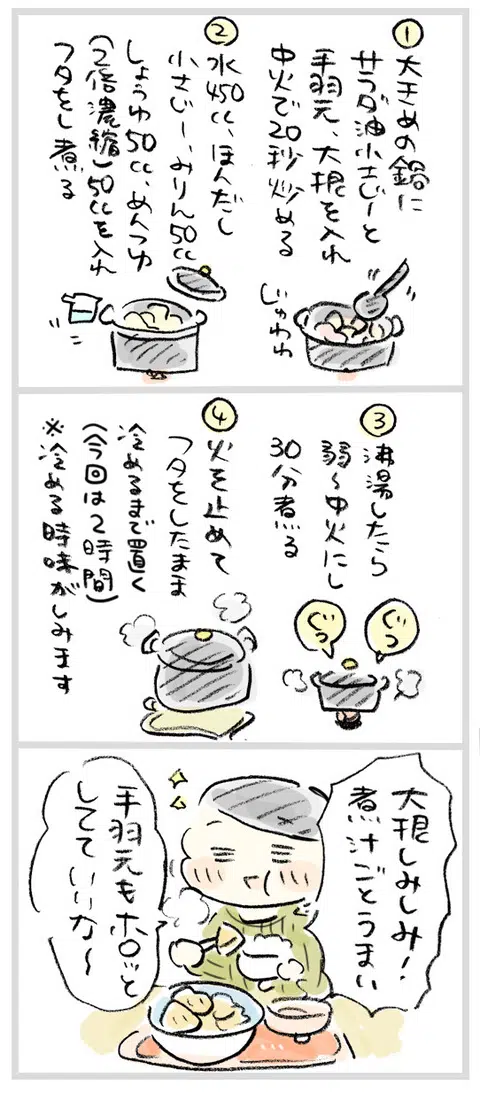 ①
大きめの鍋に
サラダ油小さじ1と
手羽元、大根を入れ
中火で20秒炒める
じゅわわ
②
水450cc、ほんだし
小さじ1、みりん50cc
しょうゆ50cc、めんつゆ
(2倍濃縮)50ccを入れ
フタをし煮る
③
沸湯したら
弱〜中火にし
30分煮る
ぐつ
ぐつ
④
火を止めて
フタをしたまま
冷めるまで置く
(今回は2時間)
※冷める時味がしみます
大根しみしみ!
煮汁ごとうまい
手羽元もホロッと
してていいな〜